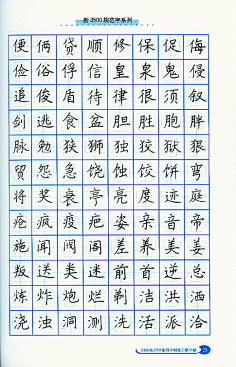 新3500钢笔字系列
便俩贷顺修保促侮
俭俗俘信皇泉鬼侵
追俊盾待律很须叙
剑逃食盆胆胜胞胖
脉勉狭狮独狡狱狠
贸怨急饶蚀饺饼弯
将奖哀亭亮度迹庭
疮疯疫疤姿亲音帝
施闻阀阁差养美姜
叛送类迷前首逆总
炼炸炮烂剃洁洪洒
浇浊洞测洗活派洽